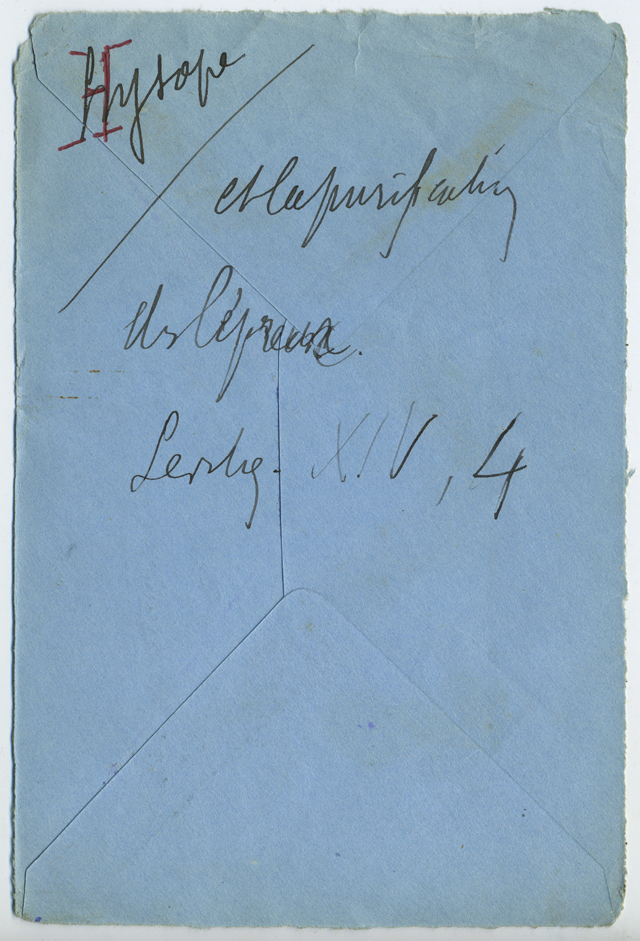 Hysope
et la purification
des lépreux.
Levitiq. XIV, 4